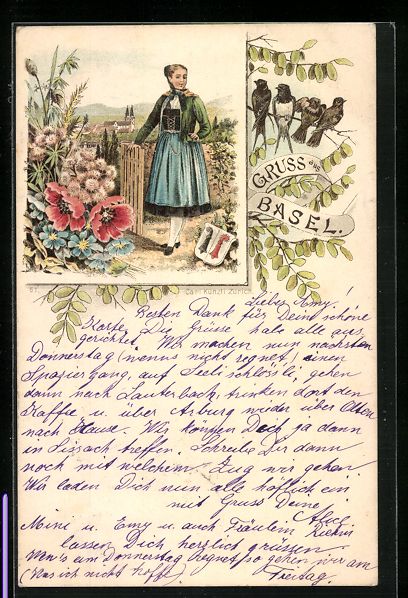 GRUSS aus
BASEL.
Carl Künzli, Zürich
Liebes Amy!
Besten Dank für Deine schöne
Karte. Die Grüsse habe alle aus
gerichtet. Wir machen nun nächsten
Donnerstag (wenns nicht regnet) einen
Spaziergang, auf Säli schlössli, gehen
dann nach Lauterbach, trinken dort den
Kaffee u. über Arburg wieder über Olten
nach Hause. Wir können Dich ja dann
in Sissach treffen. Schreibe Dir dann
noch mit welchem Zug wir gehen.
Wir laden Dich nun alle höflich ein
mit Gruss Deine
Alice
Mimi u. Emy u. auch Fräulein
lassen Dich herzlich grüssen
Wen's am Donnerstag regnet so gehen wir am
(Was ich nicht hoffe) Freitag.